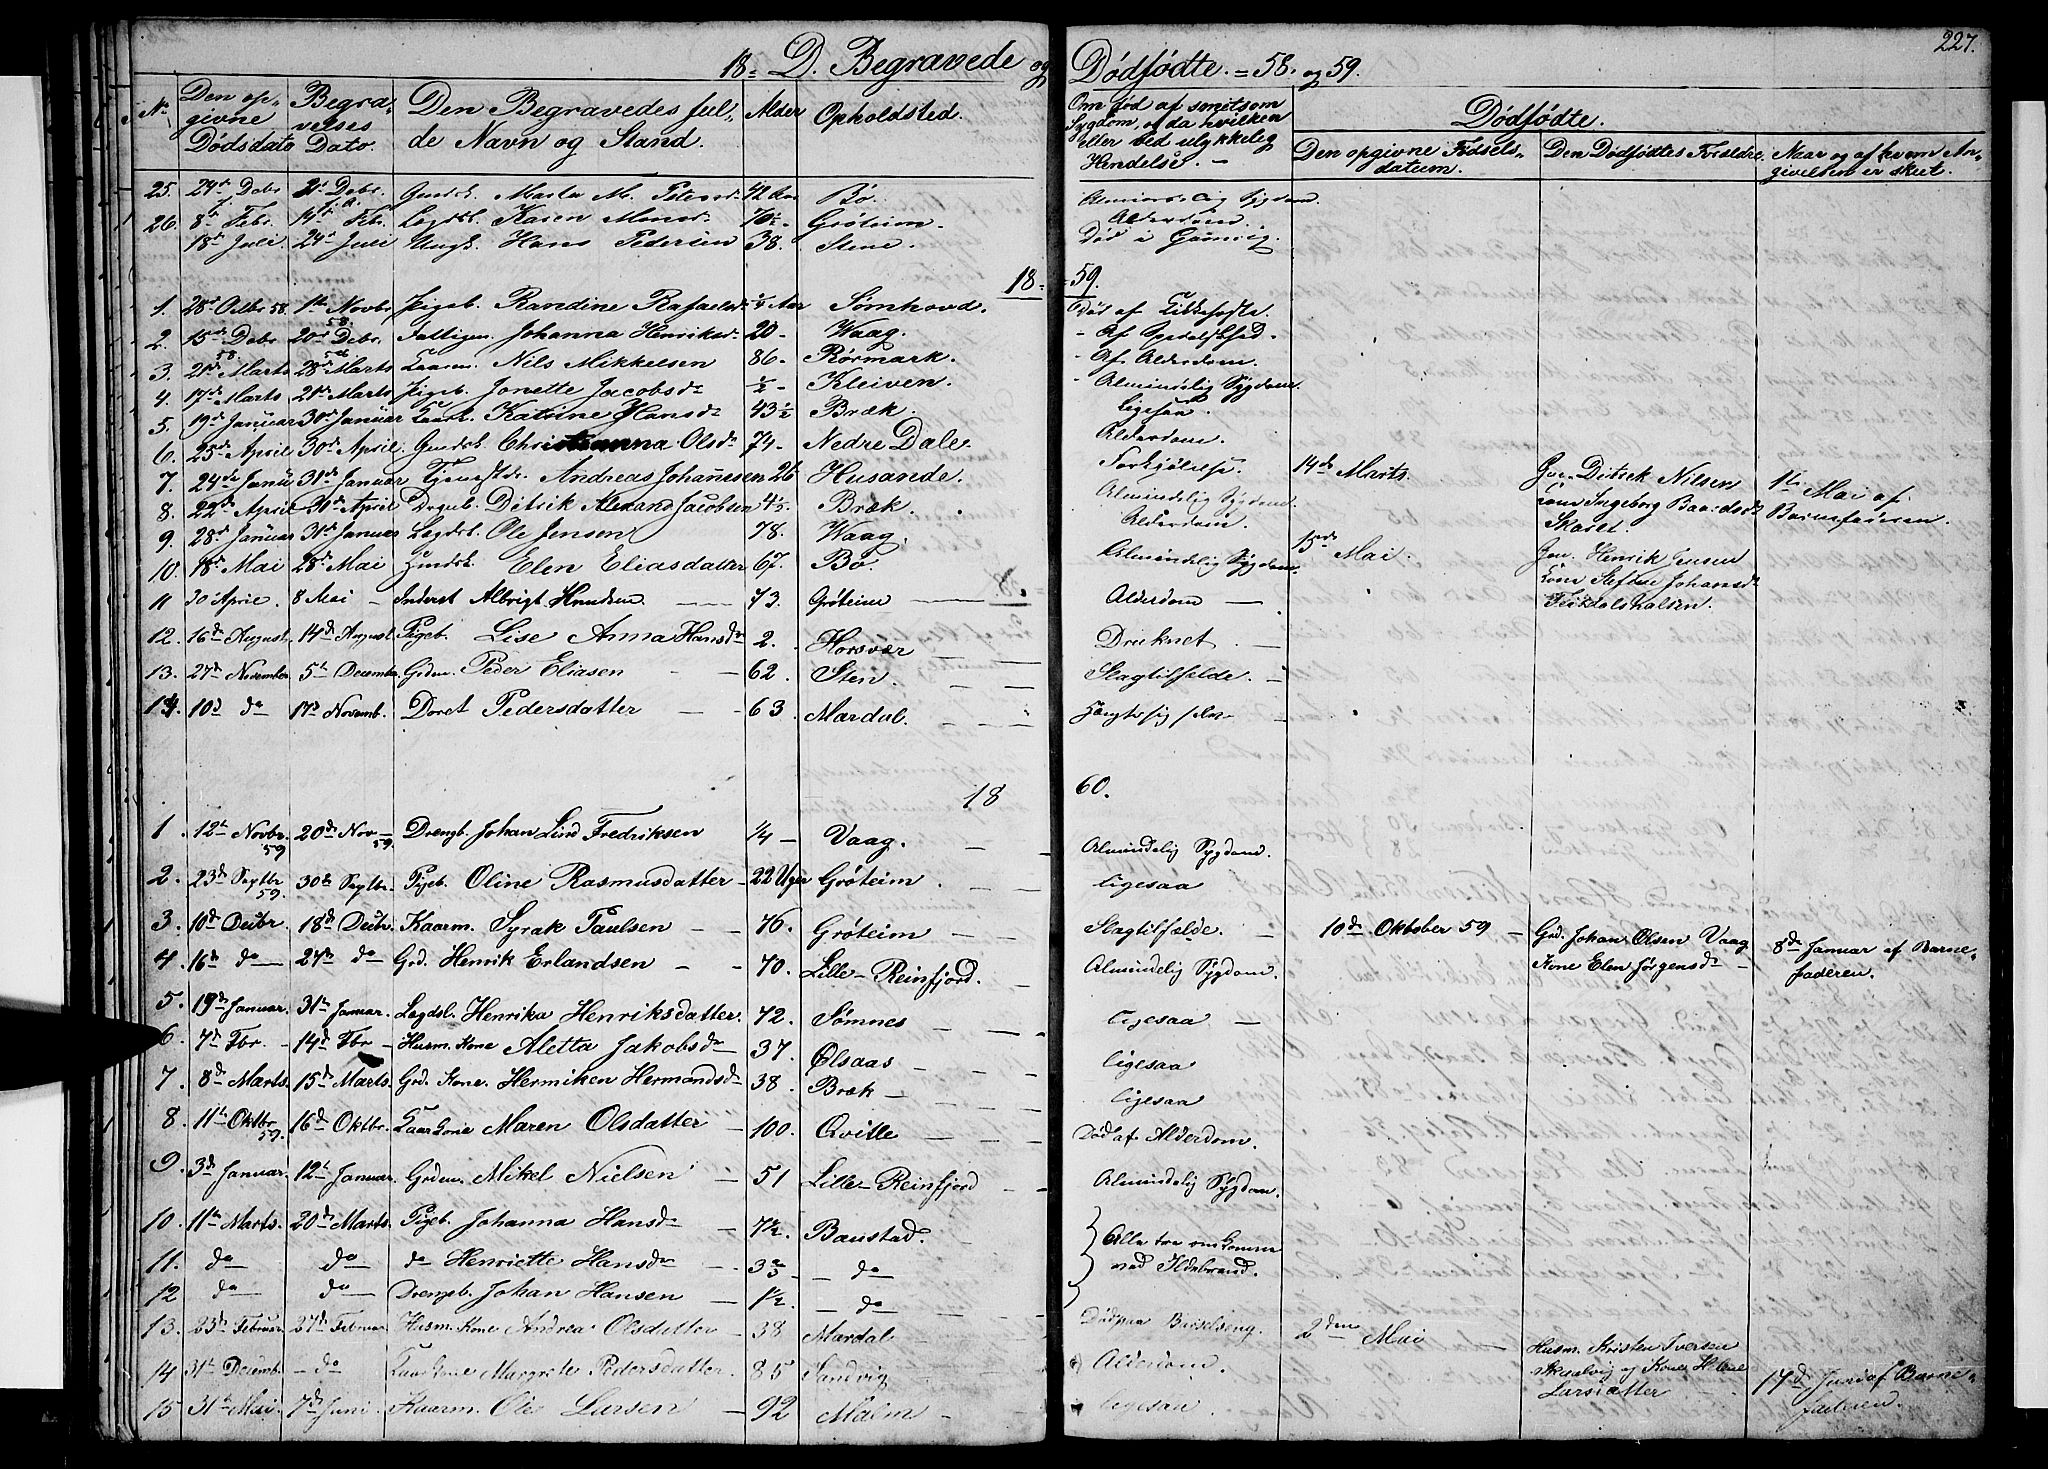 227.
18= D. Begravede og Dödfödte. = 58. og 59.
No. Den opgivne Dödsdato Begravelses Dato. Den Begravedes fulde Navn og Stand. Alder Opholdsted. Om död af smitsom Sygdom, og da hvilken eller ved ulykkelig Hendelse. — Dödfödte.
Den opgivne Födselsdatum. Den Dödfödtes Forældre Naar og af hvem Angivelsen er skeet.
25. 24de Debr. 2de Debr. Marta M. Petersd. 42 Bö.
26. 8de Febr. 14de Febr. Legdsl. Karen Monsd. 70½ Gröteim. Alderdom.
18de Juli. 24de Juli Ungk. Hans Pedersen 38. Stene. Död i
18=59.
1. 28de Octbr 58. 1ste Novbr. Pigeb. Randine Rafaelsd. ¼ Aar Sömhovd. Död af Kikhoste.
2. 15de Debr. 58. 20de Debr. 58 Fattigm. Johanna Henriksd. 20 Waag. Af Spedalskhed.
3. 21de Marts 28de Marts Kaarm. Nils Mikkelsen 86. Rörmark. Af Alderdom.
4. 17de Marts 21de Marts Pigeb. Jonette Jacobsdr ½ Kleiven. Almindelig Sygdom.
5. 19de Januar 30de Januar Katrine Hansdr 43½ Bræk. ligesaa.
6. 25de April 30de April. Christianna Olsdr 74. Nedre Dale. Alderdom.
7. 24de Januar 31de Januar Tjenestdr. Andreas Johannesen 26 Husande. Forkjölelse. 14de Marts. Gm. Ditrik Nilsen Kone Ingeborg Baardsdr Skaret. 1ste Mai af Barnefaderen.
8. 22de April 30de April Drgeb. Ditrik Alexand Jacobsen 4½. Bræk. Almindelig Sygdom.
9. 28de Januar 31de Januar Legdsl. Ole Jensen 78. Waag. Alderdom.
10. 18de Mai 28de Mai Elen Eliasdatter 67. Bö. Almindelig Sygdom. 15de Mai. Henrik Jensen Kone Johansdr
11 30 April. 8 Mai — Inderst Albrigt Knudsen 73. Gröteim Alderdom —
12. 16de August. 14de August. Pigeb. Lise Anna Hansdr 2. Horsvær Druknet. —
13. 27de November. 5te December. Grdm. Peder Eliasen 62. Sten. Slagtilfælde. —
14. 10de do 17de Novemb. Doret Pedersdatter 63. Mardal. Hængte sig selv —
1860.
1. 12te Novbr. 59 20de Nov 59. Drengb. Johan Lind Fredriksen ¼ — Vaag. Almindelig Sygdom.
2. 23de Septbr 59. 30de Septbr. Pigeb. Oline Rasmusdatter 22 Uger Gröteim. ligesaa
3. 10de Decbr 18de Decbr. Kaarm. Syrak Paulsen 76. Gröteim Slagtilfælde. — 10de Oktober 59 — Grd. Johan Olsen Vaag Kone Elen Jörgensdr — 8de Januar af Barnefaderen.
4. 16de do 24de do Grd. Henrik Erlandsen 70. Lille-Reinfjord. Almindelig Sygdom.
5. 19de Januar. 31te Januar. Legdsl. Henrika Henriksdatter. 72. Sömnes ligesaa —
6. 7de Fbr. 14de Fbr Husm. Kone Aletta Jakobsdr 37. Ølsaas ligesaa
7. 8de Marts. 15de Marts. Grd. Kone. Hermiken Hermandsdr 38. Bræk — ligesaa
8. 11te Oktbr. 59. 16de Oktbr. Kaar Kone Maren Olsdatter 100. Qville Död af Alderdom.
9. 3de Januar. 12te Januar. Grdm. Mikel Nielsen 51 Lille-Reinfjord Almindelig Sygdom.
10. 11te Marts. 20de Marts. Pigeb. Johanna Hansdr 7½. Baustad. Alle tre omkomne ved Ildebrand.
11. do do do Henriette Hansdr 3⅔ do
12 do do Drengeb. Johan Hansen 1½. do
13. 23de Februar 27de Februar Husm. Kone Andrea Olsdatter 38 Mardal Död paa Barselseng. 2den Mai Husm. Kristen Iversen og Kone Helene Larsdatter 17de Juni af Barnefaderen.
14 31te Decemb. do Kaar Kone Margrete Pedersdatter. 85 Sandvig Alderdom.
15 31te Mai. 7de Juni. Kaarm. Ole Larsen 92 Malm ligesaa.